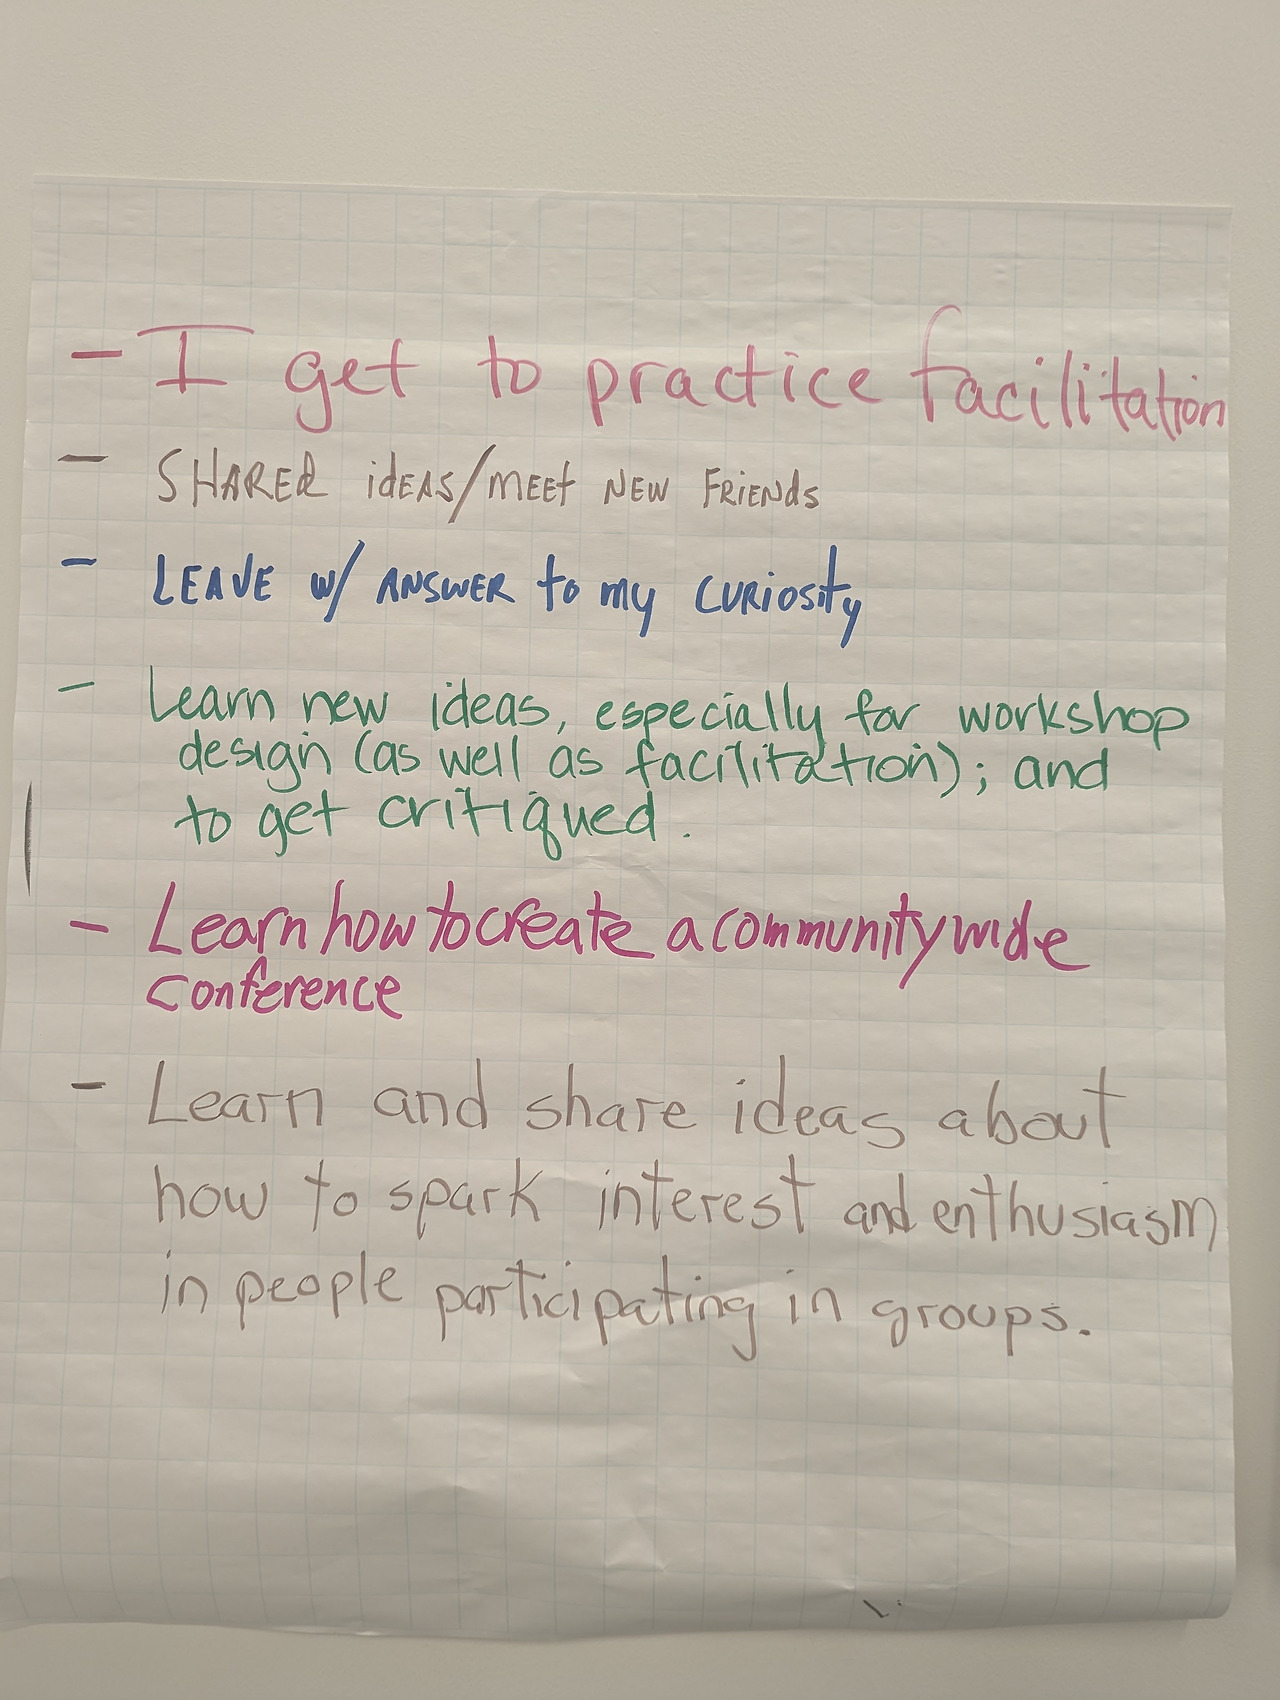 - I get to practice facilitation
- SHARED idEAS/MEEt NEW FRiENds
- LEAVE w/ ANSWER to my CURiosity
- Learn new ideas, especially for workshop
design (as well as facilitation); and
to get critiqued.
- Learn how to create a community wide
conference
- Learn and share ideas about
how to spark interest and enthusiasm
in people participating in groups.